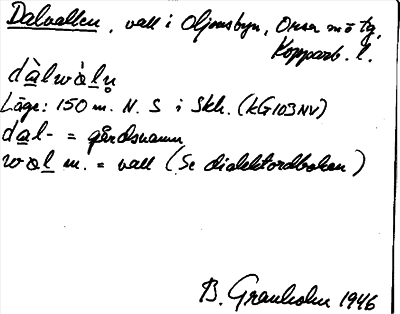 Dalvallen, vall i Oljonsbyn, Orsa sn o tg,
Kopparb. l.
dàlwàlṇ
Läge: 150 m. N. S i Skh. (kG103NV)
dal- = gårdsnamn
wal m. = vall (Se dialektordboken)
B. Granholm 1946